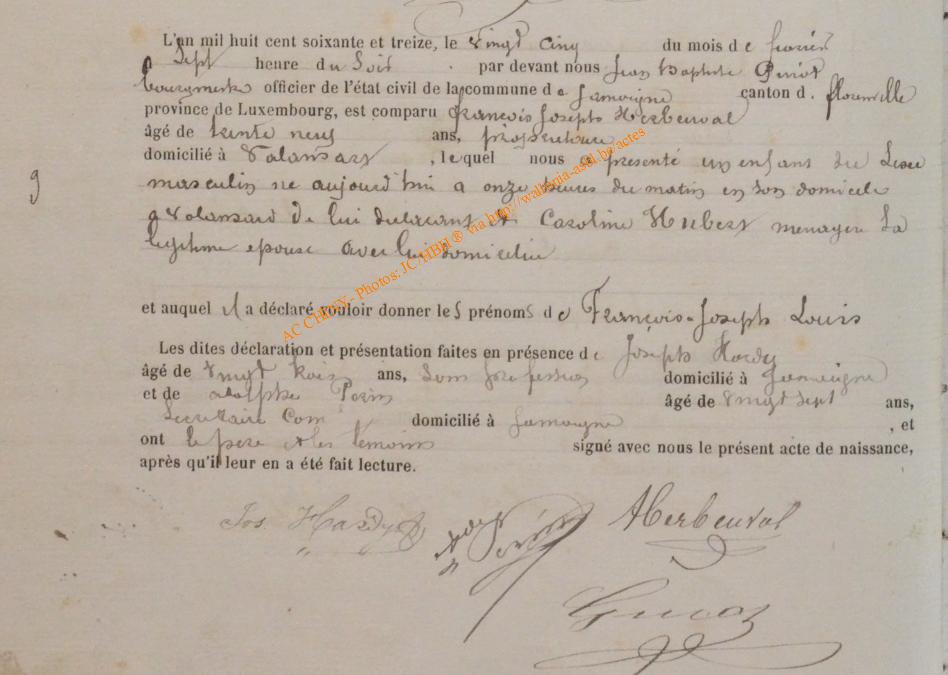 L'an mil huit cent soixante et treize, le vingt cinq du mois de fevrier
a Sept heure du Soir par devant nous Jean Baptiste
bourgmestre officier de l'état civil de la commune de Jamoigne canton d. florenville
province de Luxembourg, est comparu françois Joseph Herbeuval
âgé de trente neuf ans, proprietaire
domicilié à Valansart, lequel nous a présenté un enfant du Sexe
masculin ne aujourd'hui a onze heures du matin en son domicile
9
a Valansard de lui declarant et Caroline Hubert menagere Sa
legitime epouse avec lui domicilie
et auquel il a déclaré vouloir donner les prénoms de François-Joseph Louis
Les dites déclaration et présentation faites en présence de Joseph Hardy
âgé de vingt trois ans, Sans profession domicilié à Jamoigne
et de adolphe Perin âgé de vingt sept ans,
Secretaire Com domicilié à Jamoigne, et
ont le pere et les temoins signé avec nous le présent acte de naissance,
après qu'il leur en a été fait lecture.
Jos Hardy Perin Herbeuval
AC CHINY- Photos: JC/HBH ® via http://wallonia-asbl.be/actes